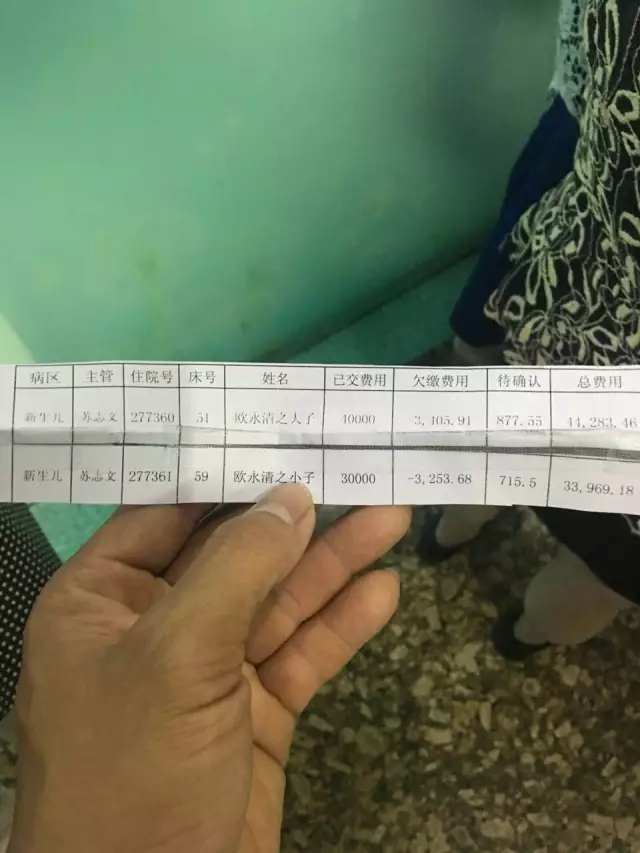 病区 主管 住院号 床号 姓名 已交费用 欠缴费用 待确认 总费用
新生儿 苏志文 277360 51 欧永清之大子 40000 -3,405.91 877.55 44,283.46
新生儿 苏志文 277361 59 欧永清之小子 30000 -3,253.68 715.5 33,969.18